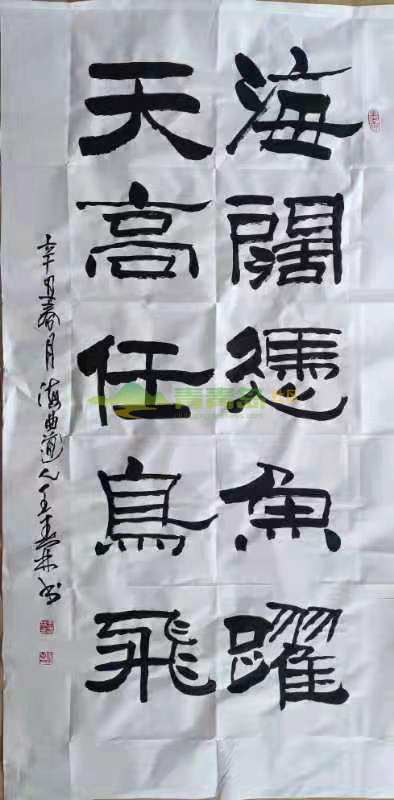 海闊憑魚躍
天高任鳥飛
辛丑春月 海曲道人王春東书